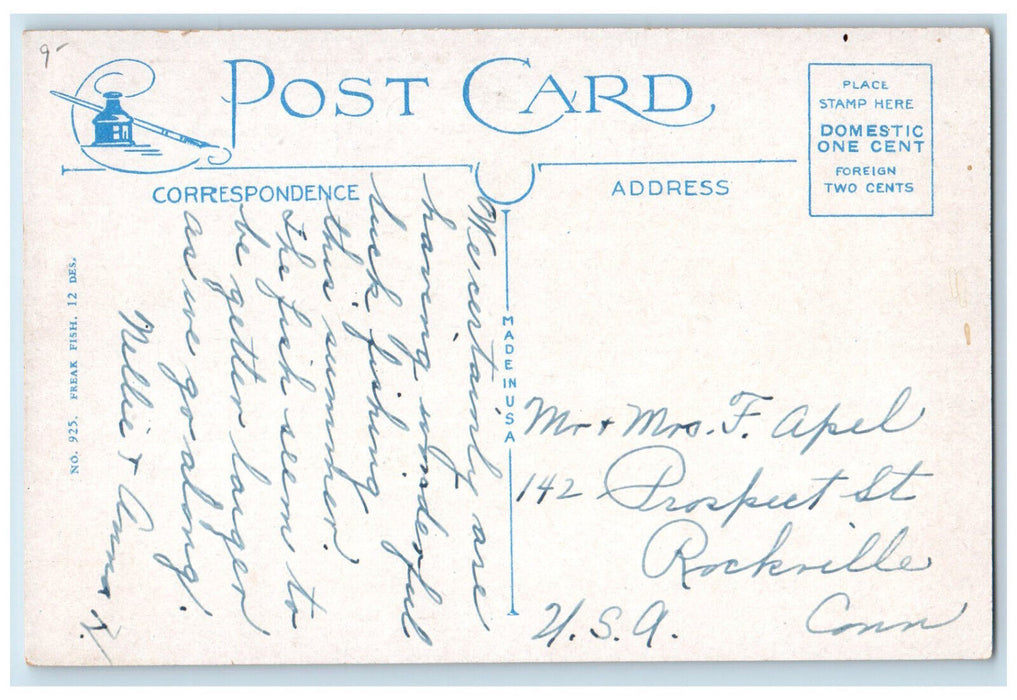 9-
POST CARD
PLACE
STAMP HERE
DOMESTIC
ONE CENT
FOREIGN
TWO CENTS
CORRESPONDENCE
ADDRESS
We certainly are
having wonderful
luck fishing
this summer.
The fish seem to
be getten larger
as we go along.
Millie + Anna K.
NO. 925. FREAK FISH. 12 DES.
MADE IN USA
Mr + Mrs. F. Apel
142 Prospect St
Rockville
Conn
U.S.A.